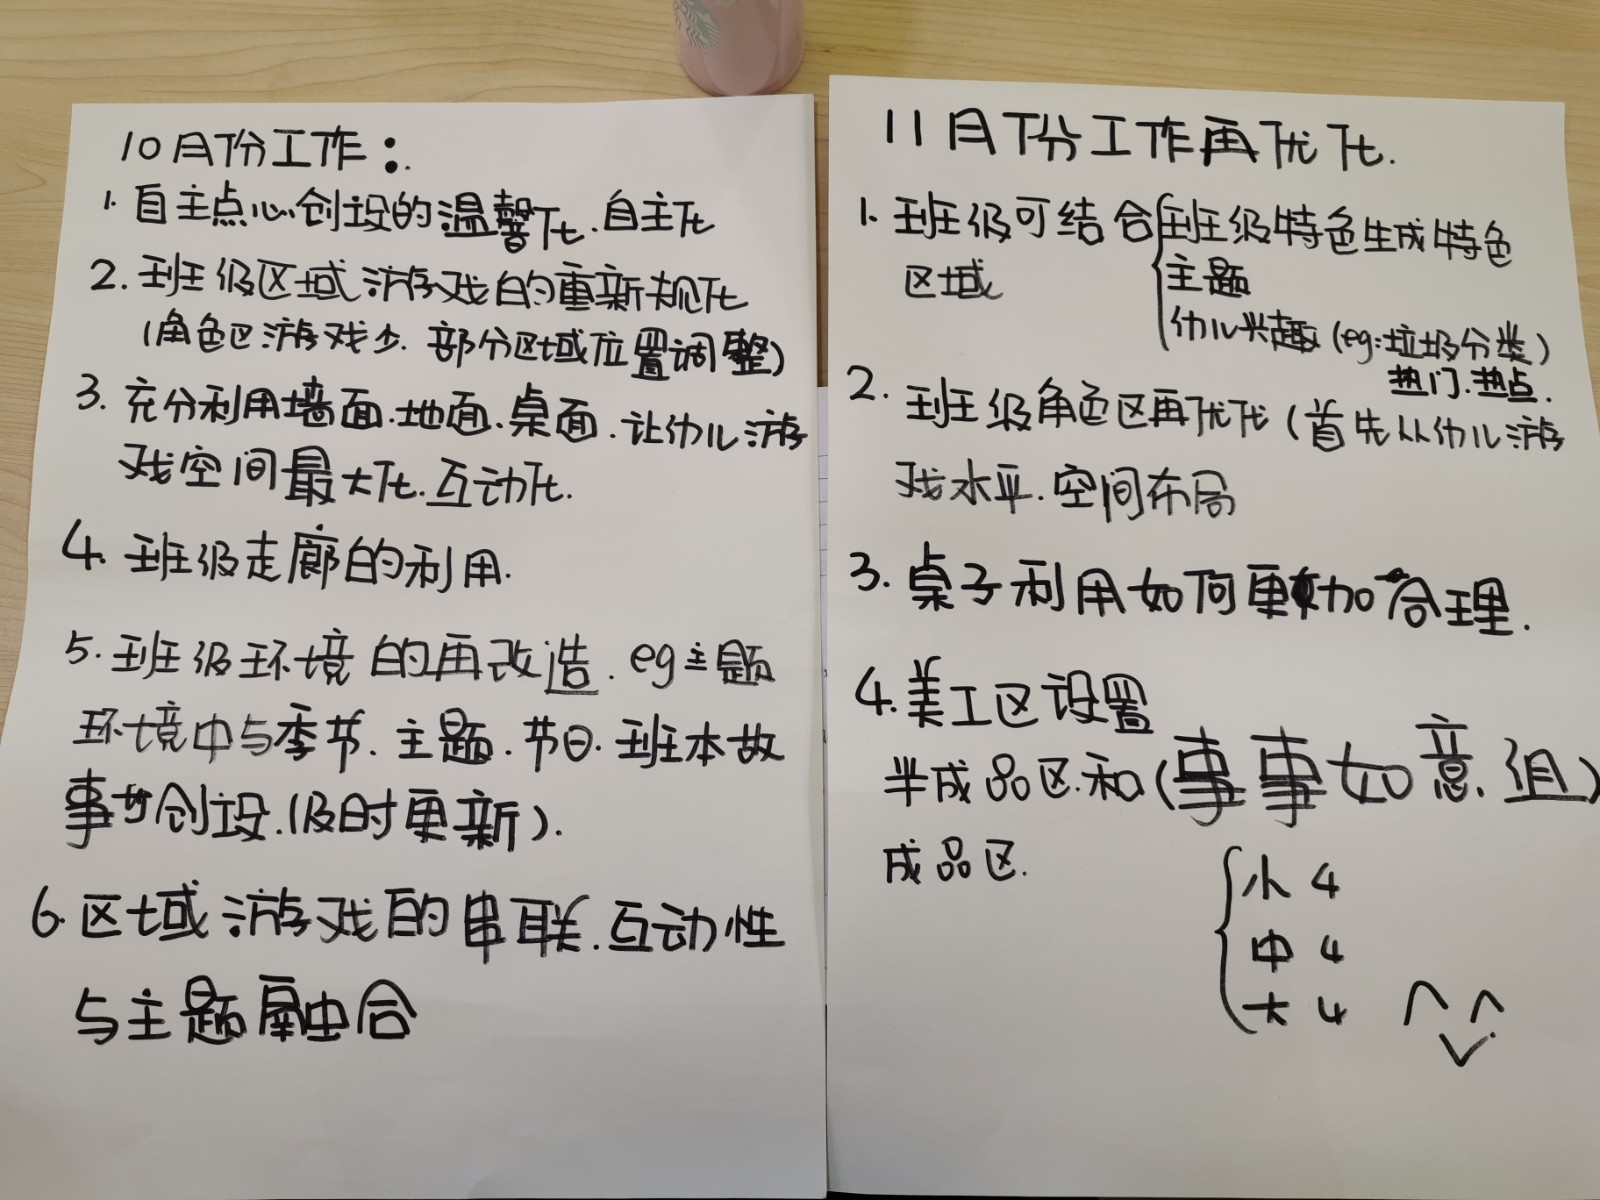 10月份工作：
1. 自主点心创设的温馨化.自主化
2. 班级区域游戏的重新规化
(角色区游戏少.部分区域位置调整)
3. 充分利用墙面.地面.桌面.让幼儿游
戏空间最大化.互动化.
4. 班级走廊的利用.
5. 班级环境的再改造. eg主题
环境中与季节.主题.节日.班本故
事的创设.(及时更新).
6. 区域游戏的串联.互动性
与主题融合
11月份工作再优化.
1. 班级可结合{班级特色生成特色
区域
主题
幼儿兴趣(eg:垃圾分类)
热门.热点.
2. 班级角色区再优化(首先从幼儿游
戏水平.空间布局
3. 桌子利用如何更加合理.
4. 美工区设置
半成品区.和(事事如意.组)
成品区.
小 4
中 4
大 4